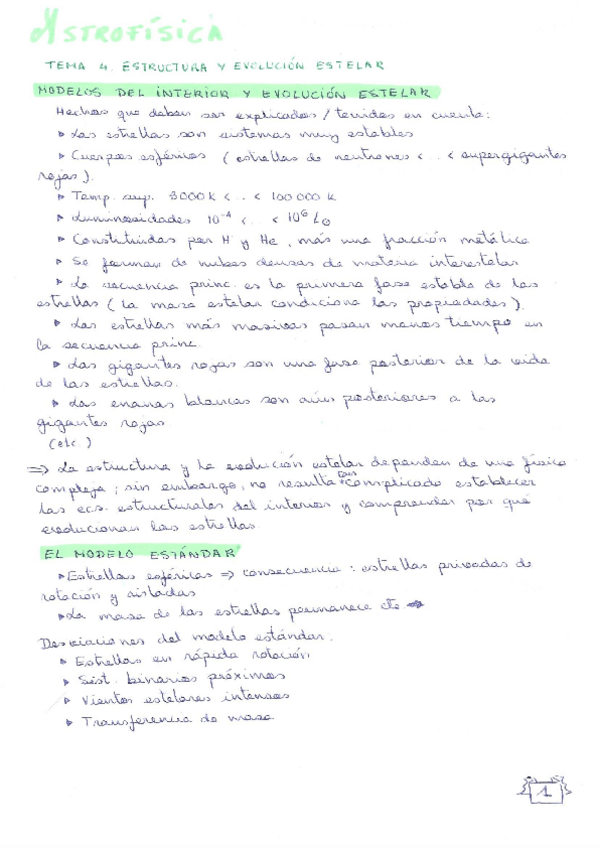 ASTROFÍSICA
TEMA 4. ESTRUCTURA Y EVOLUCIÓN ESTELAR
MODELOS DEL INTERIOR Y EVOLUCIÓN ESTELAR
Hechos que deben ser explicados / tenidos en cuenta:
▸ Las estrellas son sistemas muy estables
▸ Cuerpos esféricos (estrellas de neutrones < .. < supergigantes
rojas).
▸ Temp. sup. 3000 K < .. < 100 000 K
▸ Luminosidades 10⁻⁴ < .. < 10⁶ L⊙
▸ Constituidas por H y He, más una fracción metálica
▸ Se forman de nubes densas de materia interestelar
▸ La secuencia princ. es la primera fase estable de las
estrellas (la masa estelar condiciona las propiedades).
▸ Las estrellas más masivas pasan menos tiempo en
la secuencia princ.
▸ Las gigantes rojas son una fase posterior de la vida
de las estrellas.
▸ Las enanas blancas son aún posteriores a las
gigantes rojas.
(etc.)
⇒ La estructura y la evolución estelar dependen de una física
compleja; sin embargo, no resulta tan complicado establecer
las ecs. estructurales del interior y comprender por qué
evolucionan las estrellas.
EL MODELO ESTÁNDAR
▸ Estrellas esféricas ⇒ consecuencia: estrellas privadas de
rotación y aisladas
▸ La masa de las estrellas permanece cte
Desviaciones del modelo estándar.
▸ Estrellas en rápida rotación
▸ Sist. binarios próximos
▸ Vientos estelares intensos
▸ Transferencia de masa
1